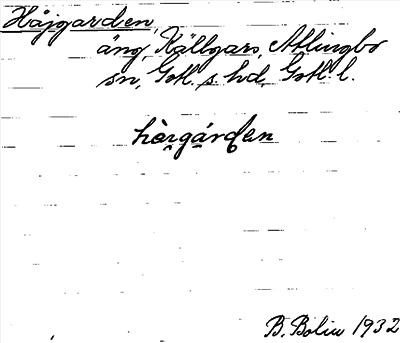 Håjgarden,
äng, Källgars, Atlingbo
sn, Gotl. s. hd, Gotl. l.
hòi̯gárđen
B. Bolin 1932